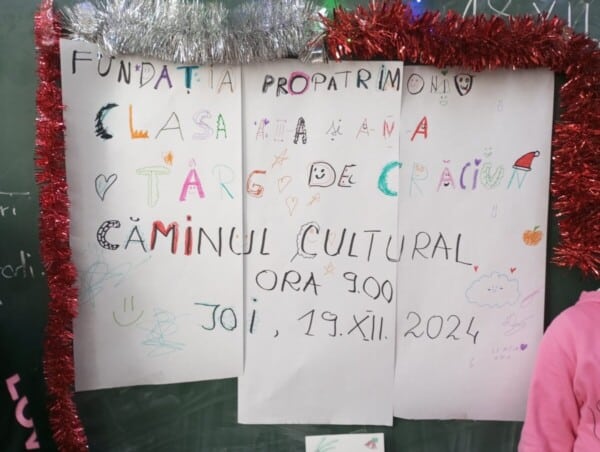 FUNDAȚIA PROPATRIMONIU
CLASA A II A ȘI A III A
TÂRG DE CRĂCIUN
CĂMINUL CULTURAL
ORA 9.00
JOI, 19.XII. 2024
LOV